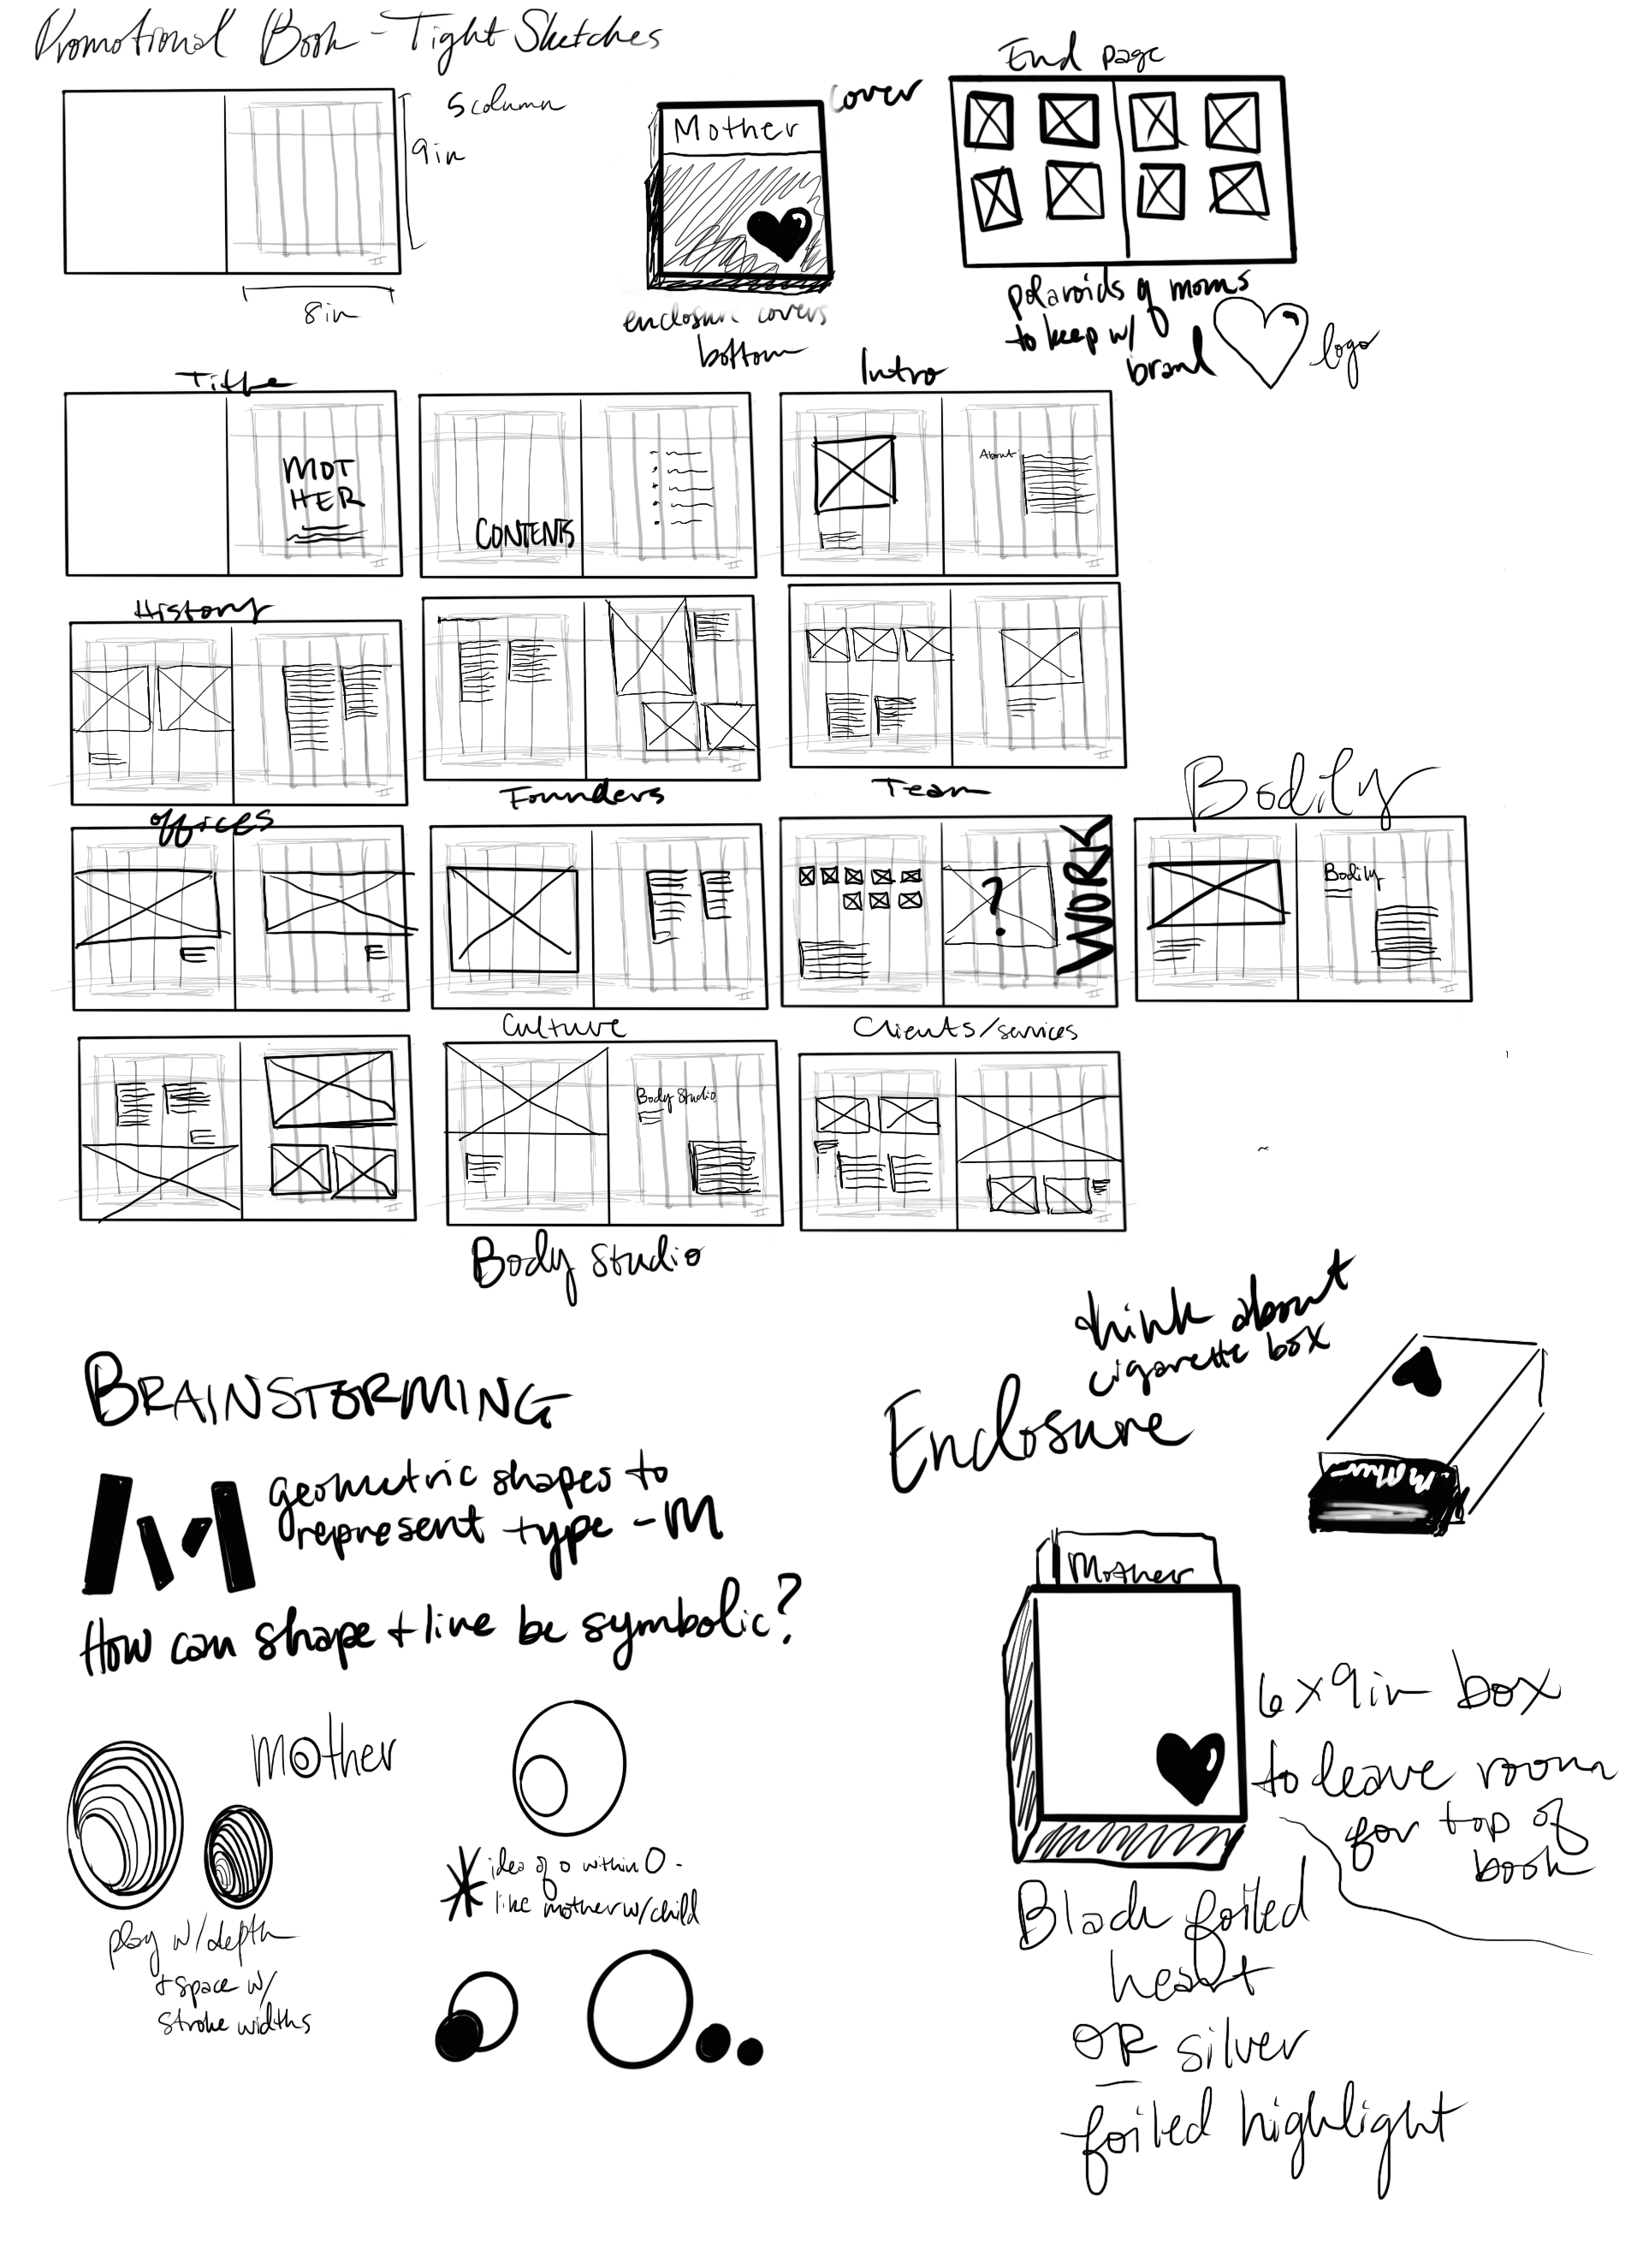 Promotional Book - Tight Sketches
5 column
9in
8in
Mother
cover
enclosure covers
bottom
End page
polaroids of moms
to keep w/
brand
logo
Title
MOT
HER
CONTENTS
Intro
About
History
Founders
Team
offices
?
WORK
Bodily
Bodily
Culture
Clients/services
Body Studio
Body Studio
BRAINSTORMING
geometric shapes to
represent type - M
How can shape + line be symbolic?
mother
play w/depth
+ space w/
stroke widths
idea of o within O -
like mother w/child
think about
cigarette box
Enclosure
Mother
Mother
6 x 9in box
to leave room
for top of
book
Black foiled
heart
OR silver
foiled highlight